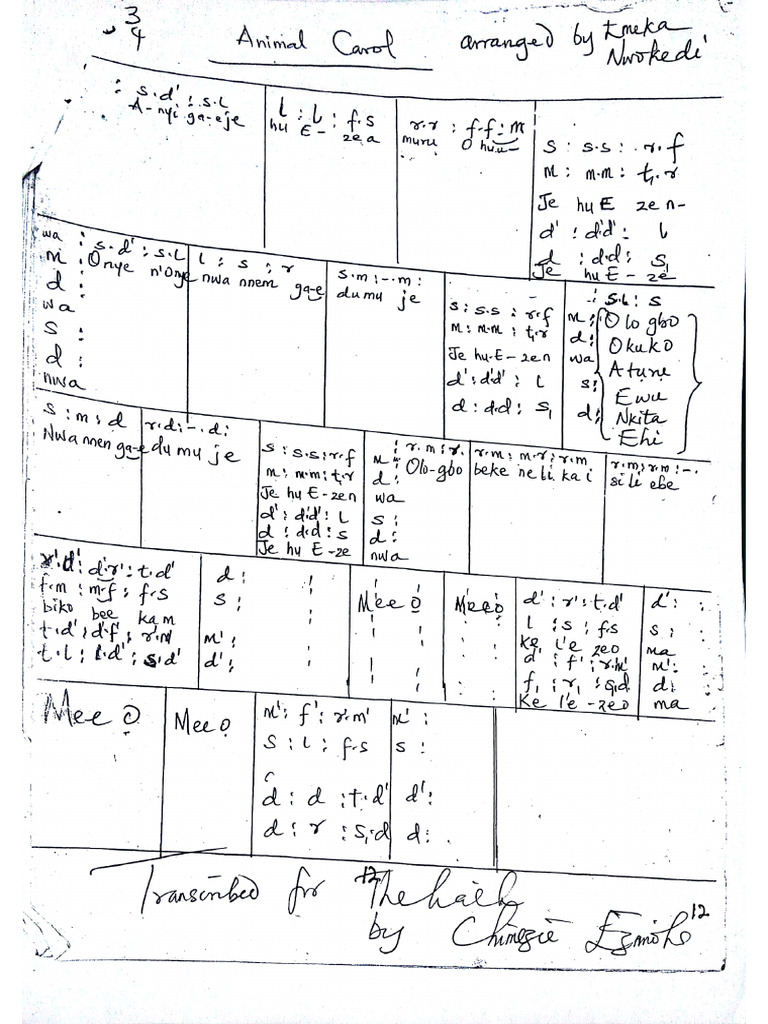 3/4 Animal Carol arranged by Emeka Nwokedi
: s.d' : s.l
A-nyi ga-eje
l : l : f.s
hu E- ze a
r.r : f.f : m
muru O hu u-
s : s.s : r.f
m : m.m : t₁.r
Je hu E ze n-
d' : d'd' : l
d : d.d : s₁
Je hu E - ze
wa
m :
d :
wa
s :
d :
nwa
: s.d' : s.l
Onye n'Onye
l : s : r
nwa nnem ga-e
s.m : -.m :
du mu je
s : s.s : r.f
m : m.m : t₁.r
Je hu E-zen
d' : d'd' : l
d : d.d : s₁
: s.l : s
m : Olo gbo
d : Okuko
wa Aturu
s : Ewu
d : Nkita
Ehi
s : m : d
Nwa nnen ga-e
r.d : -.d :
du mu je
s : s.s : r.f
m : m.m : t.r
Je hu E-zen
d' : d'd' : l
d : d.d : s
Je hu E-ze
m :
d :
wa
s :
d :
nwa
: r.m : r.
Olo-gbo
r.m : m.r : r.m
beke ne bi ka i
r.m : r.m : -.
si li ebe
r'.d' : d'.r' : t.d'
f.m : m.f : f.s
biko bee kam
t.d' : d'.f' : r'.m'
t.l : l.d' : s.d'
d :
s :
m' :
d' :
Mee ọ
Mee ọ
d' : r' : t.d'
l : s : f.s
Ke l'e zeo
d' : f' : r'.m'
f₁ : r₁ : s₁.d
Ke l'e -zeo
d' :
s :
ma
m' :
d :
ma
Mee ọ
Mee ọ
m' : f' : r'.m'
s : l : f.s
d : d : t.d'
d : r : s₁.d
m' :
s :
d' :
d :
Transcribed for
by Chinezie Ezmohe 12